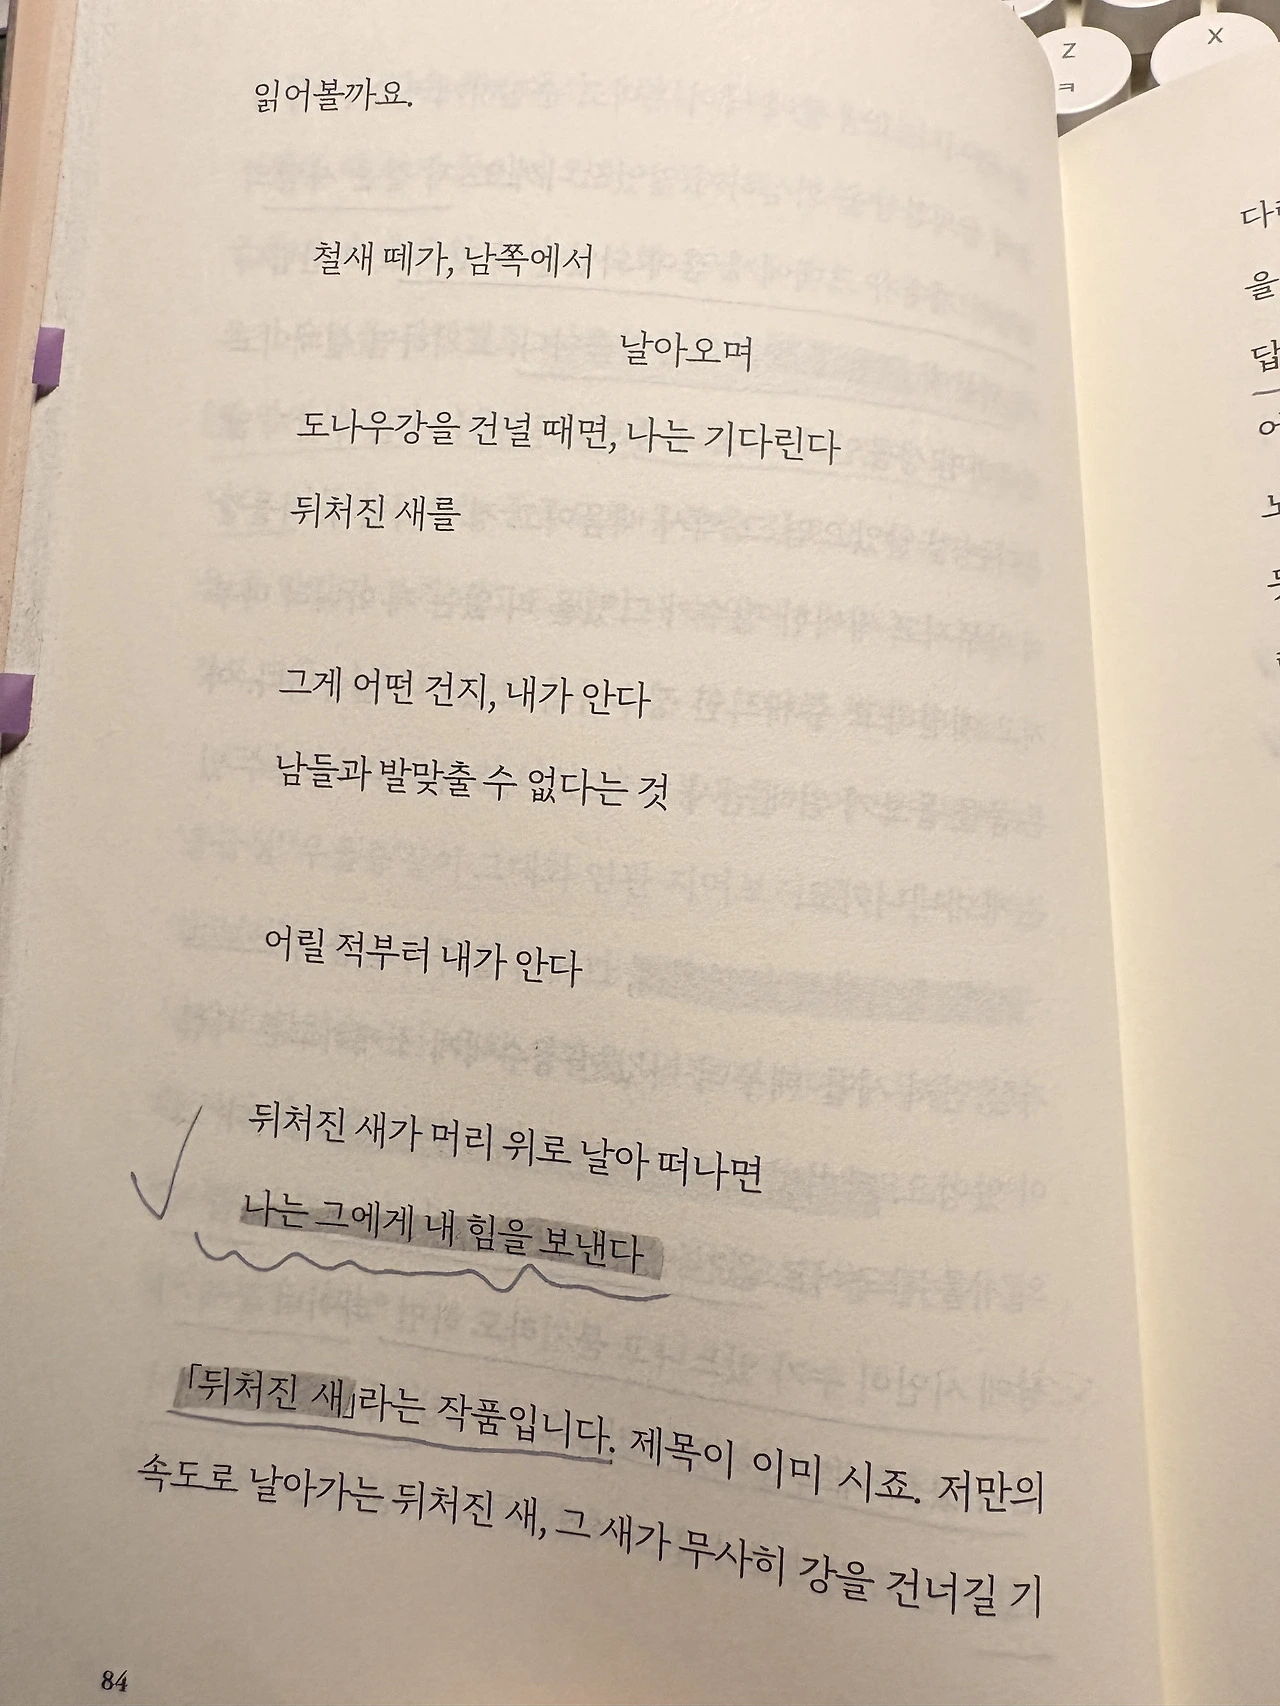 읽어볼까요.
철새 떼가, 남쪽에서
날아오며
도나우강을 건널 때면, 나는 기다린다
뒤처진 새를
그게 어떤 건지, 내가 안다
남들과 발맞출 수 없다는 것
어릴 적부터 내가 안다
뒤처진 새가 머리 위로 날아 떠나면
나는 그에게 내 힘을 보낸다
「뒤처진 새」라는 작품입니다. 제목이 이미 시죠. 저만의
속도로 날아가는 뒤처진 새, 그 새가 무사히 강을 건너길 기
84
Z
ㅋ
X
다
을
답